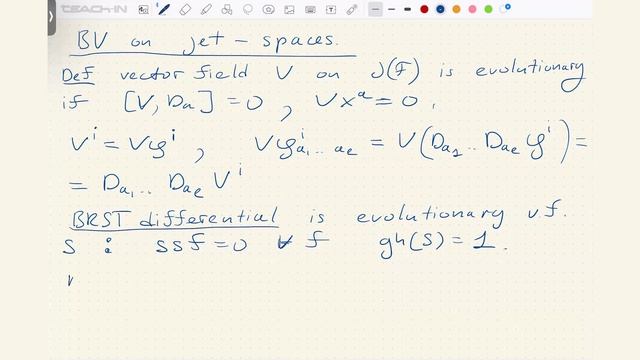 TEACH-IN
BV on jet-spaces.
Def vector field V on J(F) is evolutionary
if [V, Da] = 0 , Vx^a = 0 ,
V^i = Vφ^i , Vφ^i_{a1...ae} = V(D_{a1}..D_{ae} φ^i) =
= D_{a1}.. D_{ae} V^i
BRST differential is evolutionary v f.
s : ssf = 0 ∀ f gh(s) = 1.